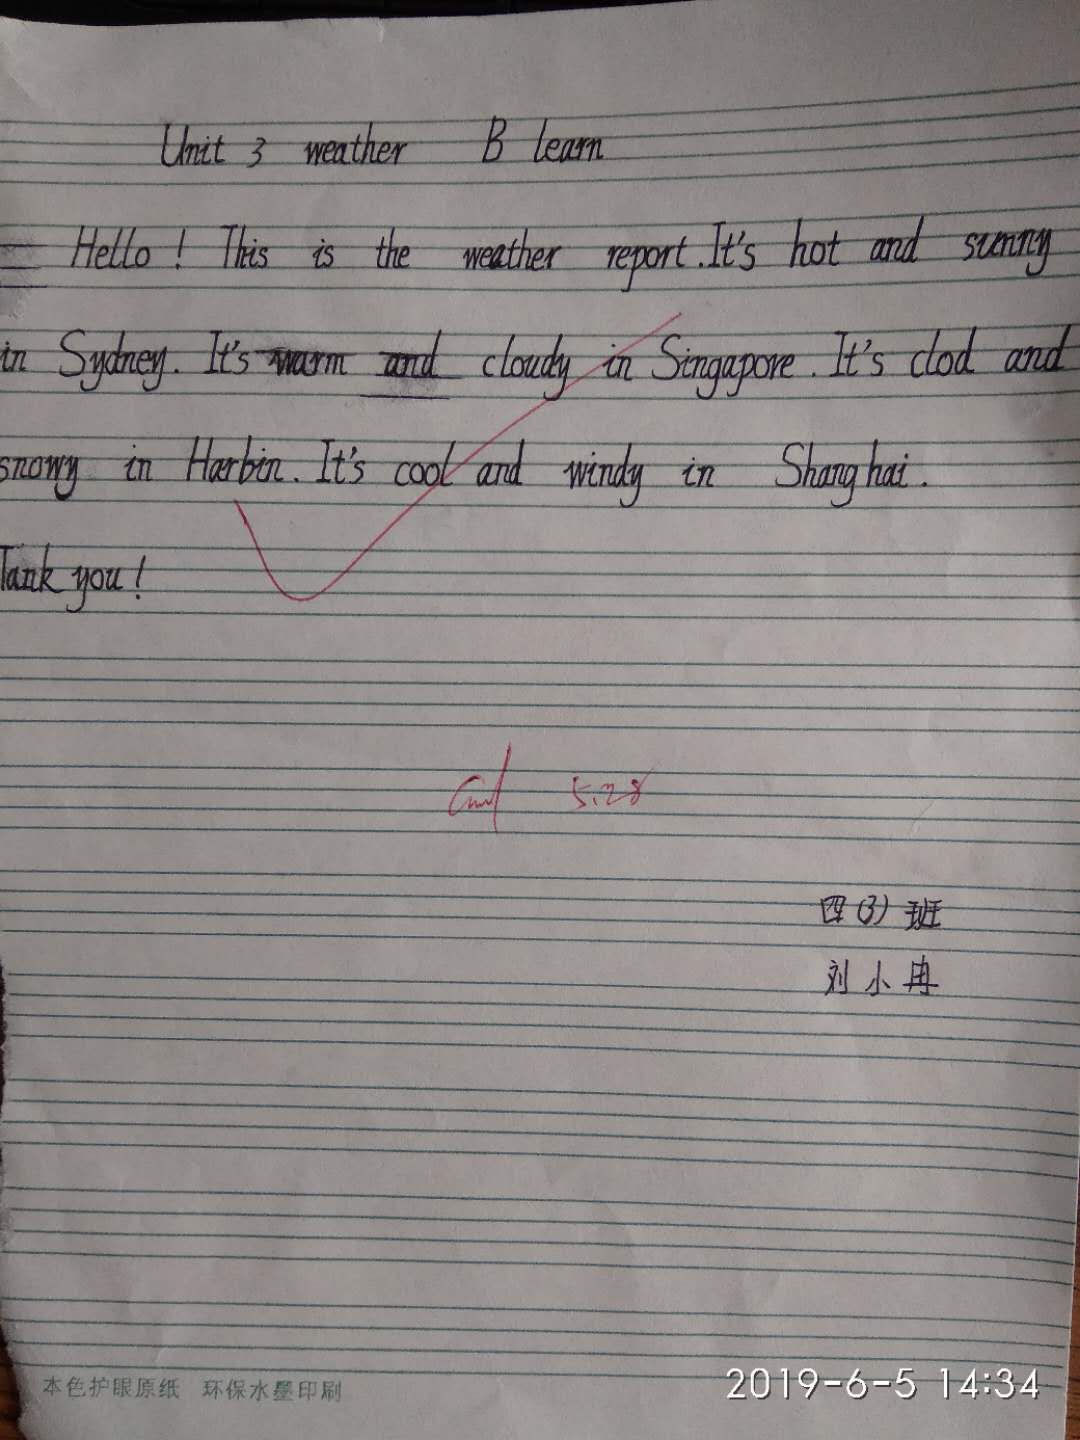 Unit 3 weather B learn
Hello! This is the weather report. It's hot and sunny
in Sydney. It's warm and cloudy in Singapore. It's clod and
snowy in Harbin. It's cool and windy in Shanghai.
Tank you!
5.28
四(3)班
刘小冉
本色护眼原纸 环保水墨印刷
2019-6-5 14:34